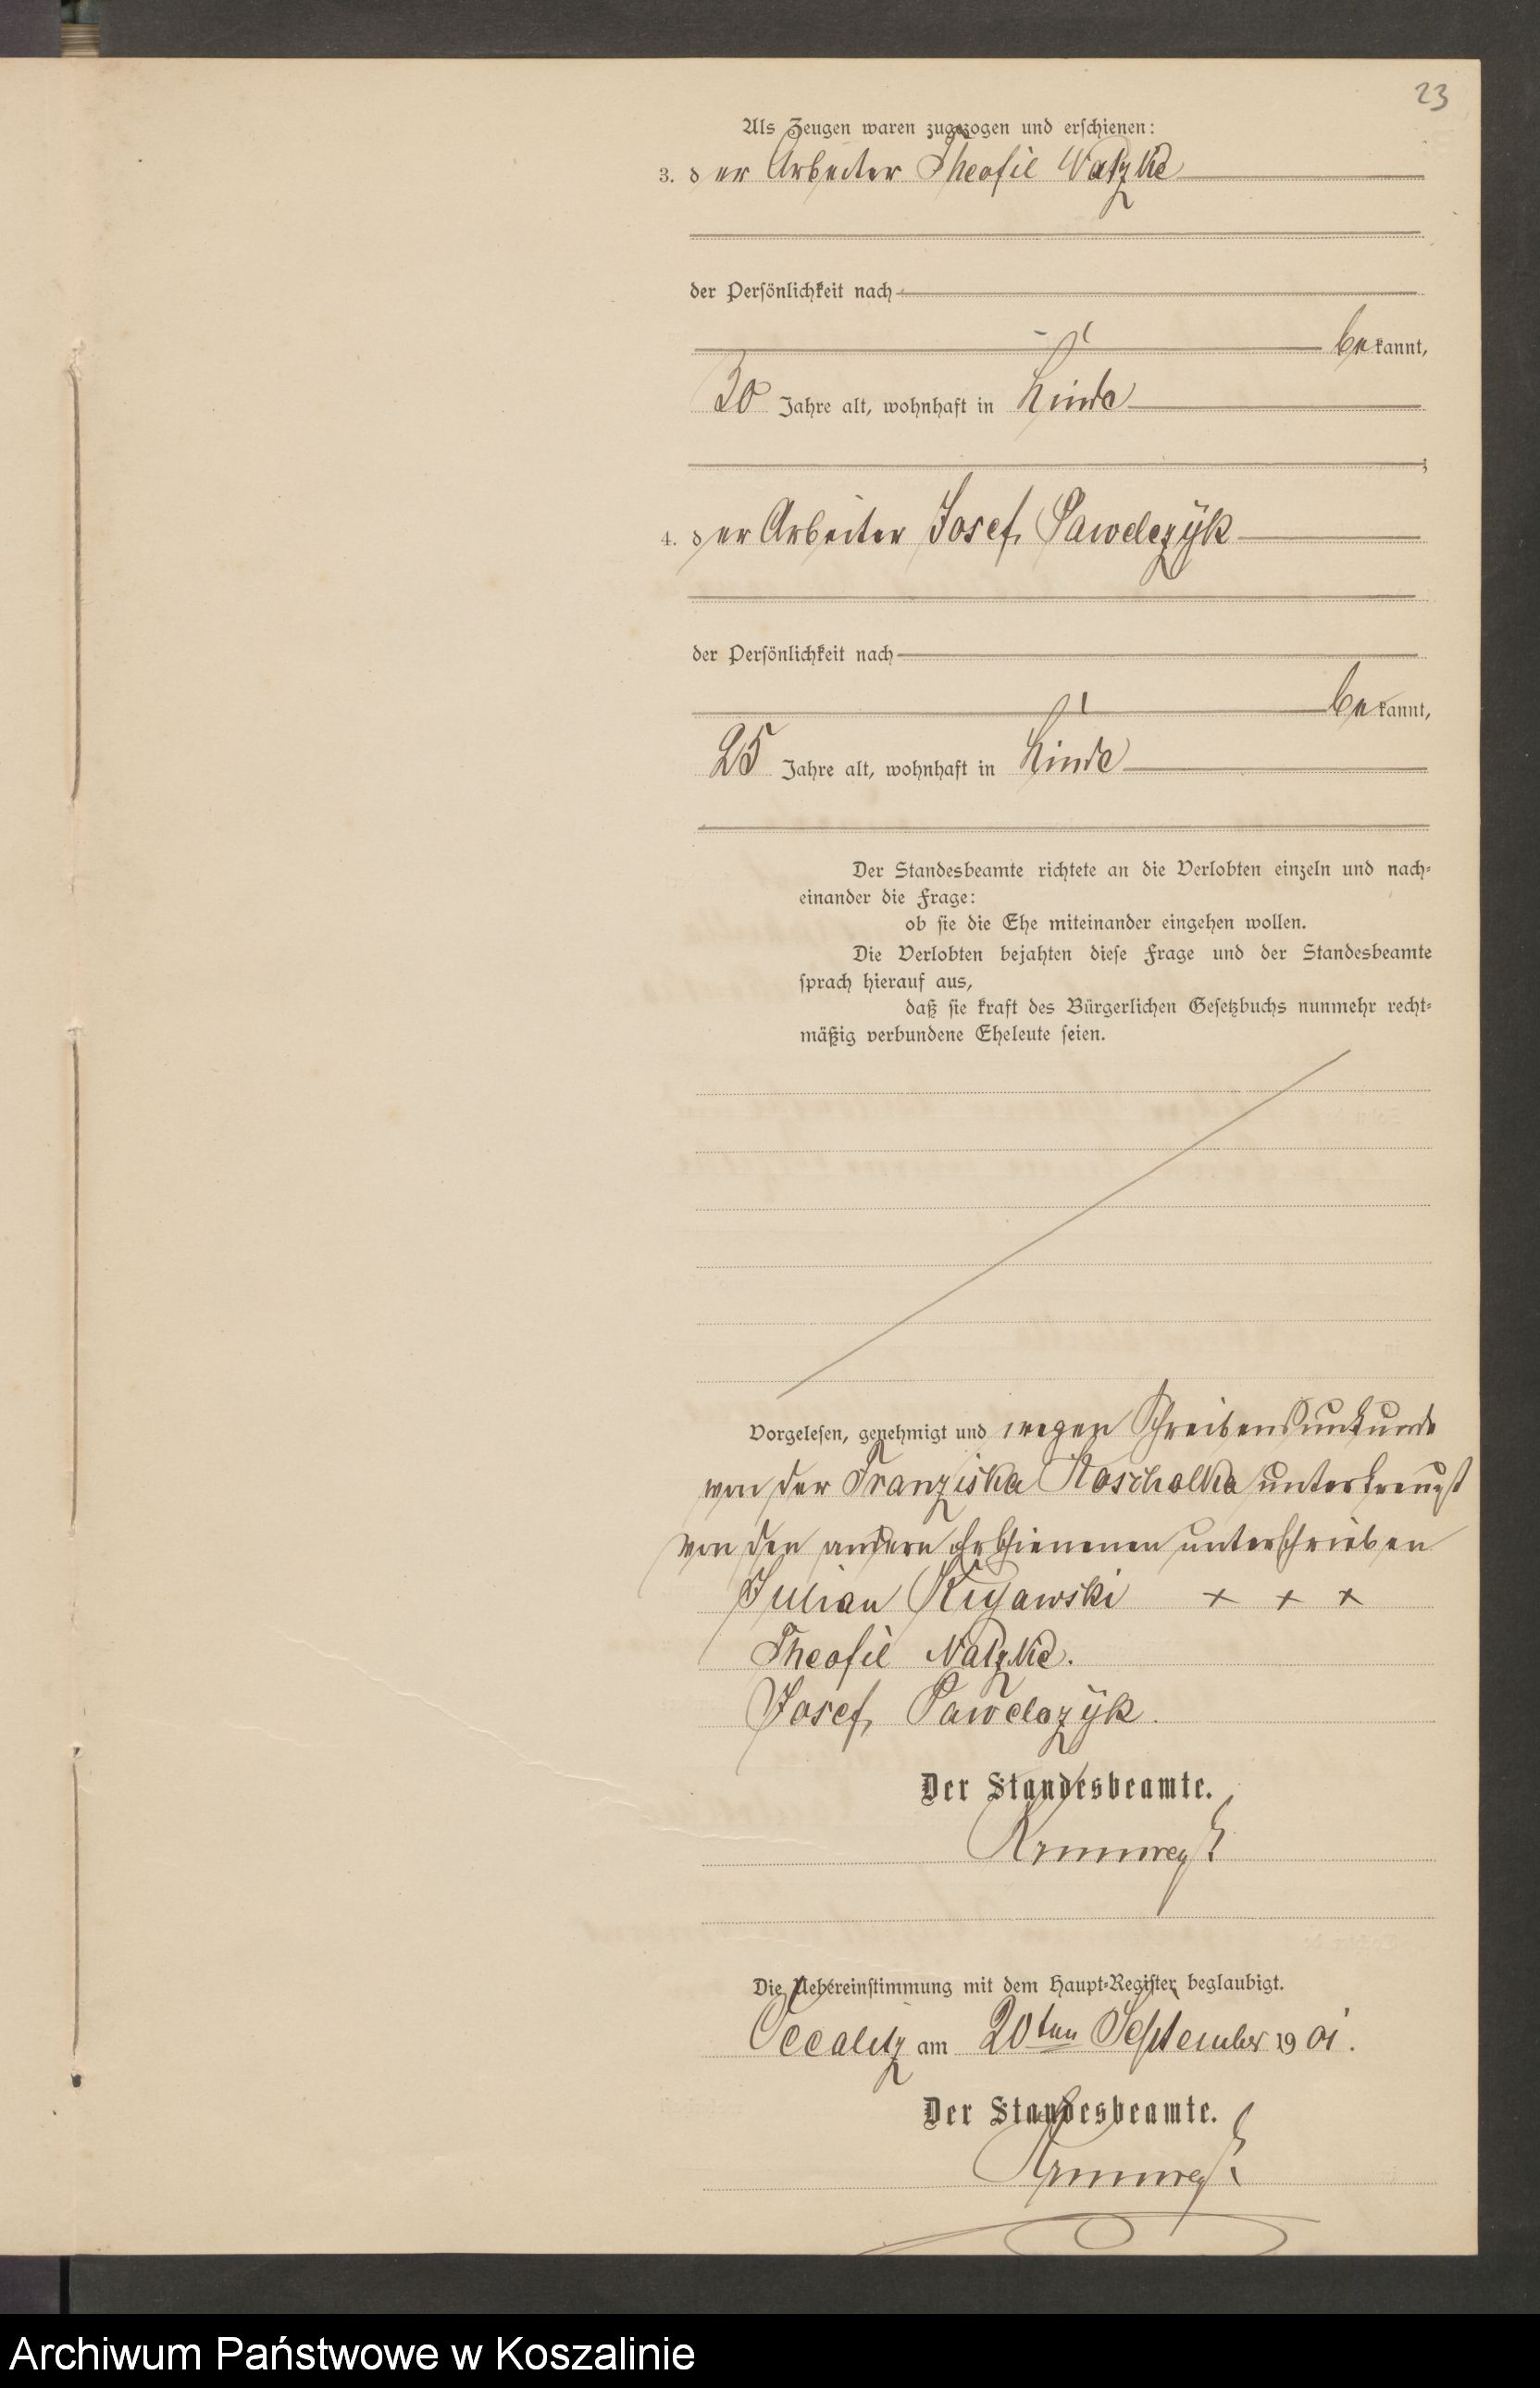 23
Als Zeugen waren zugezogen und erschienen:
3. der Arbeiter Theofil Natzke
der Persönlichkeit nach
bekannt,
30 Jahre alt, wohnhaft in Linde
;
4. der Arbeiter Josef Pawelczÿk
der Persönlichkeit nach
bekannt,
25 Jahre alt, wohnhaft in Linde
Der Standesbeamte richtete an die Verlobten einzeln und nach-
einander die Frage:
ob sie die Ehe miteinander eingehen wollen.
Die Verlobten bejahten diese Frage und der Standesbeamte
sprach hierauf aus,
daß sie kraft des Bürgerlichen Gesetzbuchs nunmehr recht-
mäßig verbundene Eheleute seien.
Vorgelesen, genehmigt und wegen Schreibensunkunde
von der Franziska Koscholka unterkreuzt
von den andern Erschienenen unterschrieben
Julian Kujawski + + +
Theofil Natzke.
Josef Pawelczÿk.
Der Standesbeamte.
Die Uebereinstimmung mit dem Haupt-Register beglaubigt.
Occalitz am 20ten September 1901.
Der Standesbeamte.
Archiwum Państwowe w Koszalinie